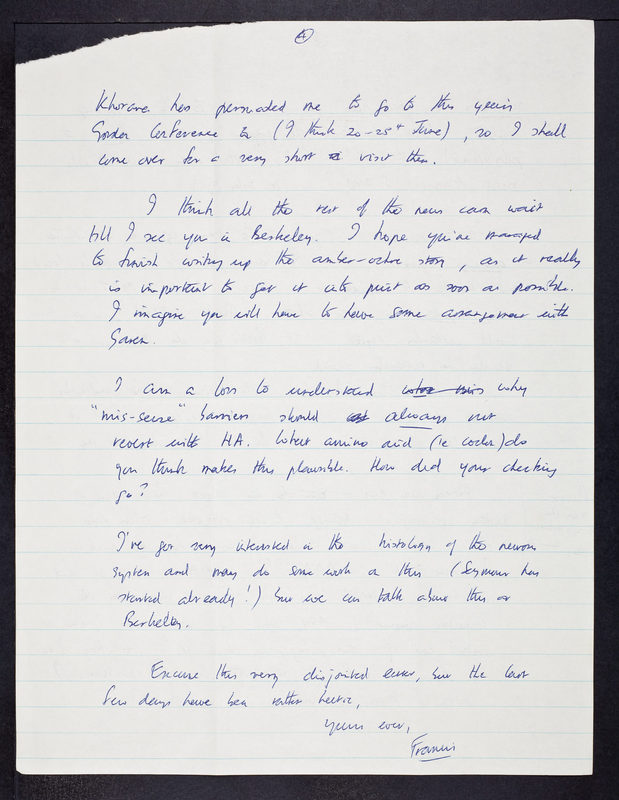 4
Khorana has persuaded me to go to this year's
Gordon Conference (I think 20-25th June), so I shall
come over for a very short visit then.
I think all the rest of the news can wait
till I see you in Berkeley. I hope you've managed
to finish writing up the amber-ochre story, as it really
is important to get it into print as soon as possible.
I imagine you will have to have some arrangement with
Garen.
I am at a loss to understand why
"mis-sense" barriers should always not
revert with HA. What amino acid (ie codon) do
you think makes this plausible. How did your checking
go?
I've got very interested in the histology of the nervous
system and may do some work on this (Seymour has
started already!) but we can talk about this at
Berkeley.
Excuse this very disjointed letter, but the last
few days have been rather hectic,
Yours ever,
Francis